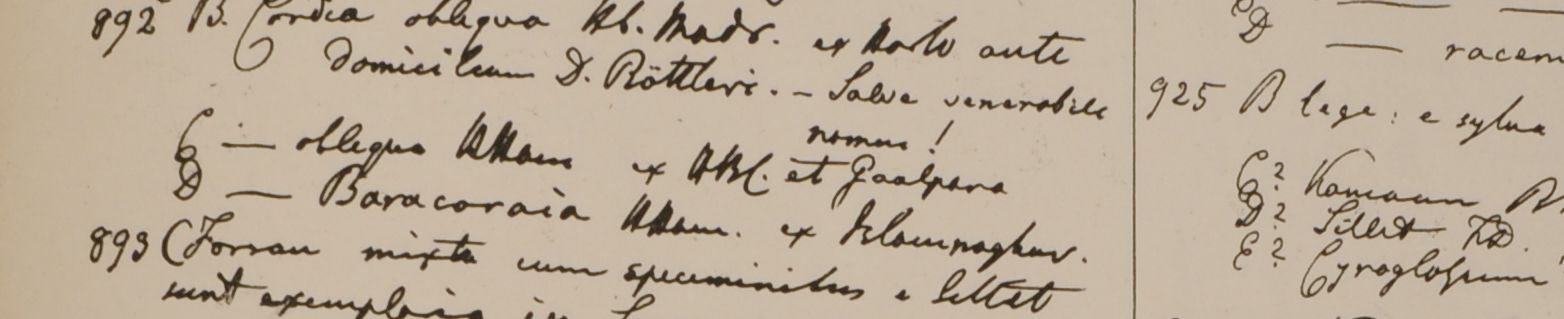 892 B. Cordia obliqua Hb. Madr. ex Horto ante
domicilium D. Röttleri. – Salve venerabile
nomen !
C — obliqua HHam ex HBC. et Goalpara
D — Baracoraia HHam. ex
893 (Forsan mixta cum speciminibus e Sillet
sunt exemplaria
D — racem
925 B lege: e sylva
C? Kamaun
D? Sillet FD.
E? Cynoglossum